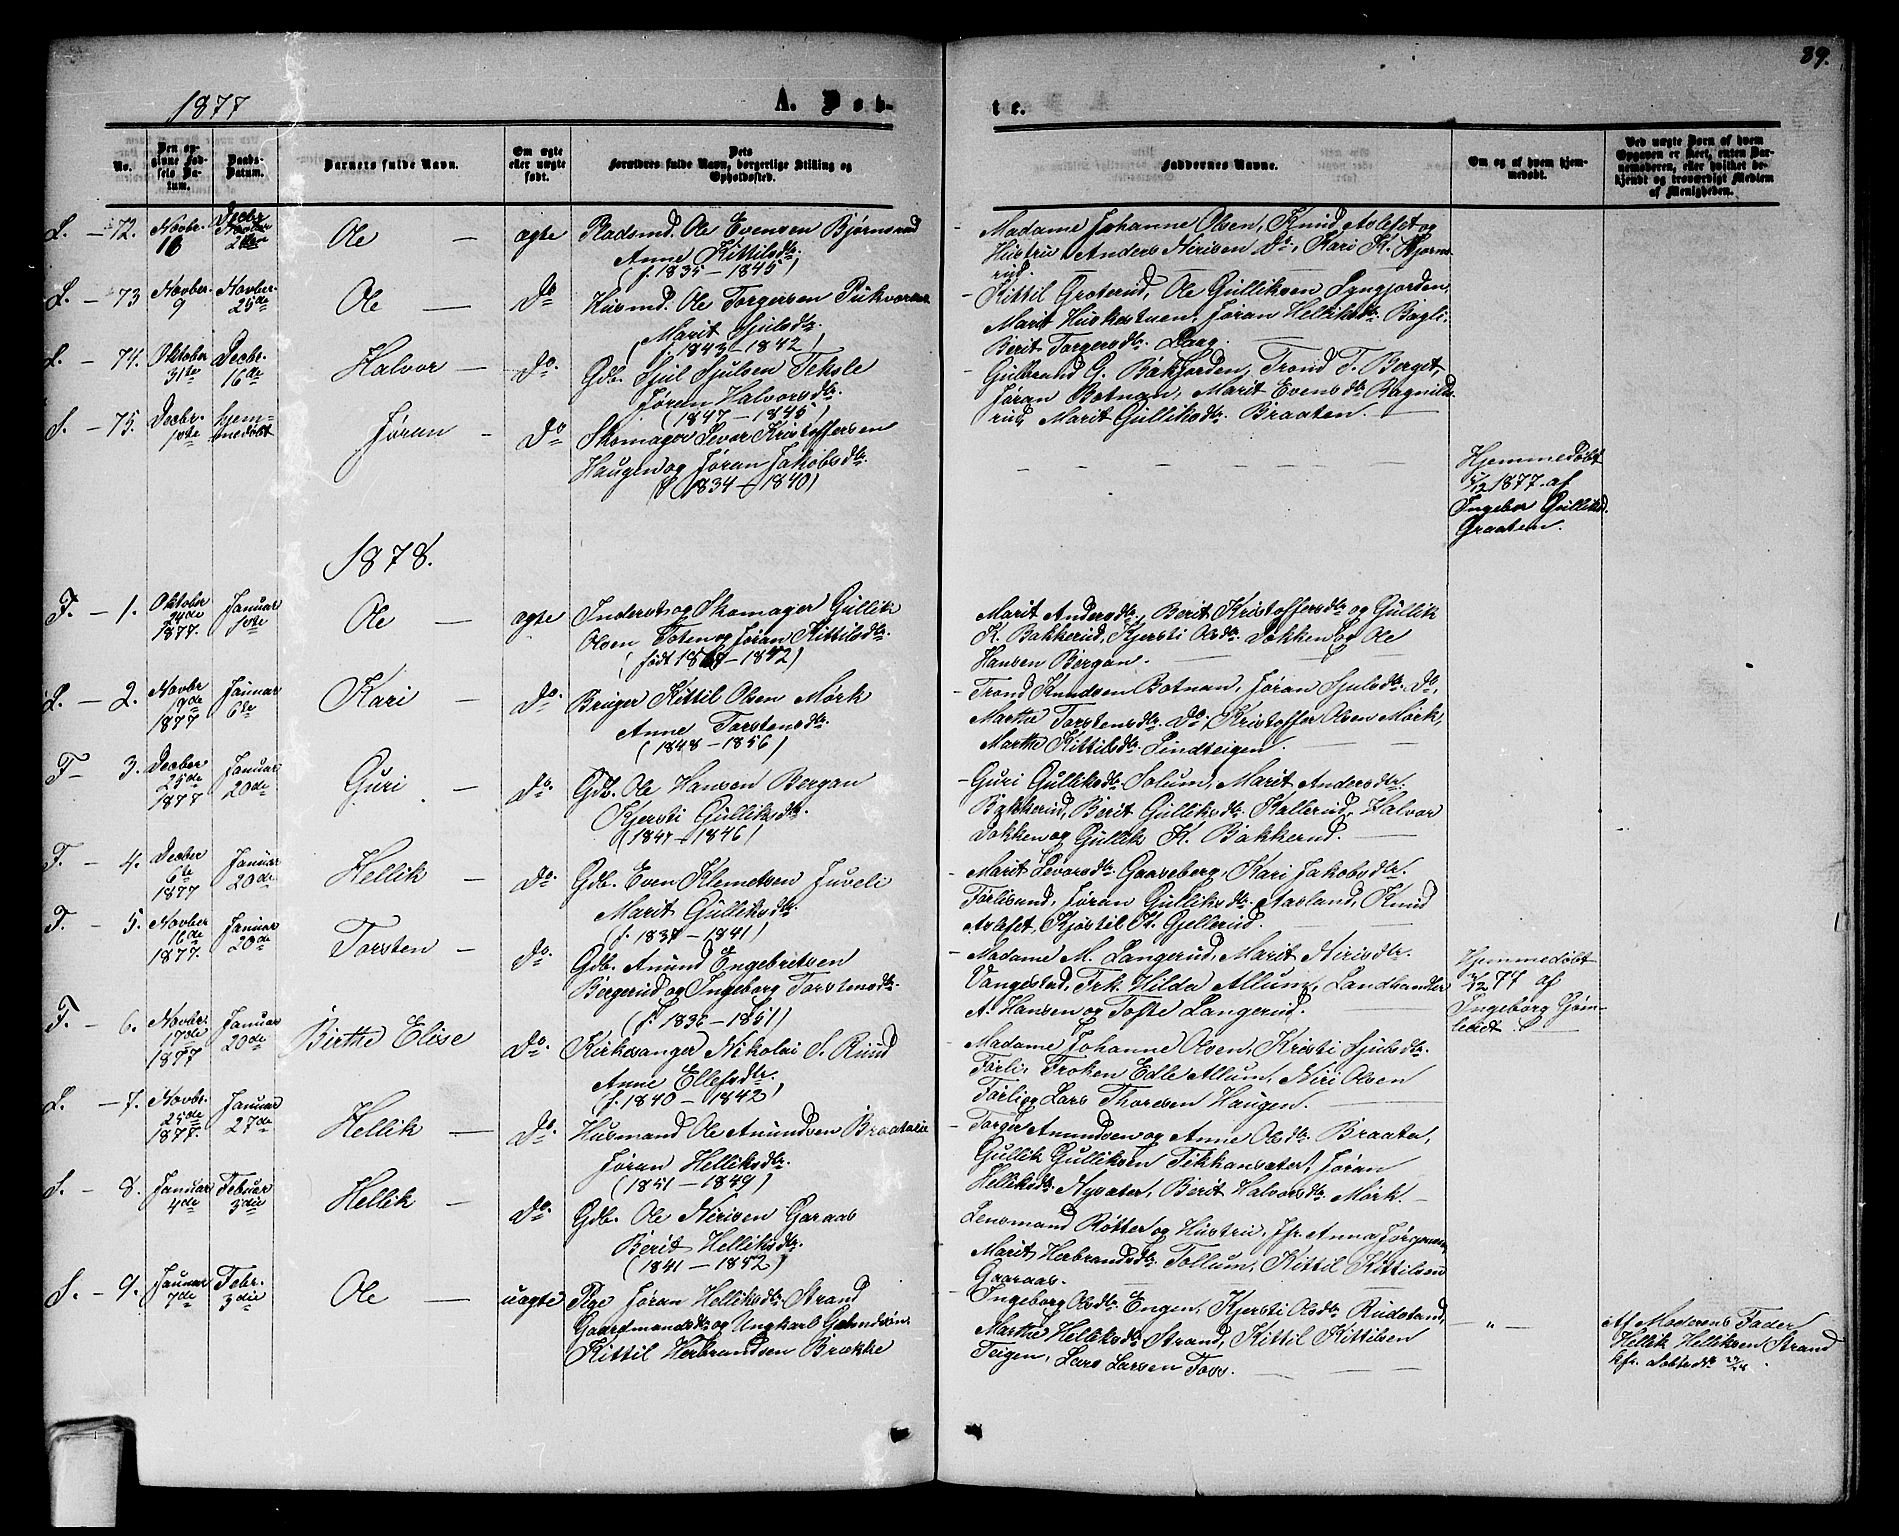 89.
1877
A. Døb-
te.
No.
Den op-
givne Fød-
sels Da-
tum.
Daabs-
Datum.
Barnets fulde Navn.
Om ægte
eller uægte
født.
Dets
Forældres fulde Navn, borgerlige Stilling og
Opholdssted.
Faddernes Navne.
Om og af hvem hjem-
medøbt.
Ved uægte Børn af hvem
Opgaven er skeet, enten Bar-
nemoderen, eller hvilket be-
kjendt og troværdigt Medlem
af Menigheden.
L. - 72. Novbr. 16 Decbr Ole - ægte Pladsmd. Ole Evensen Bjørnsrud
Anne Kittilsdtr.
(f. 1835 - 1845)
Madame Johanne Olsen, Knud Aslefet og
Hustru Anders Nirisen Do, Kari K. Bjørns-
rud.
L. - 73 Novber 9 Novber. 25de Ole - Do Husmd. Ole Torgersen
Marit Sjulsdtr.
(f. 1843 - 1842)
- Kittil Groterud, Ole Gulliksen Lyngjorden,
Marit Huskastuen, Jøran Helliksdtr. Bagli
Berit Torgersdtr. Daag.
L. - 74. Oktober 31te Decbr. 16de Halvor - Do. Gdb. Sjul Sjulsen Teksle
Jøren Halvorsdtr.
(1847 - 1845)
Gulbrand G. Bakjorden, Trond T. Berget,
Jøran Botnan, Marit Evensdtr Ragnilds-
rud, Marit Gulliksdtr. Braaten -
S. - 75. Decbr. 1ste hjem-
medøbt Jøran - Do Skomager Levor Kristoffersen
Haugen og Jøran Jakobsdtr.
(f 1834 - 1840)
Hjemmedøbt
1/12 1877. af
Ingebor Gulliksd.
Graaten.
1878.
F. - 1. Oktober 24de 1877. Januar 1ste Ole - ægte Inderst og Skomager Gullik
Olsen Toten og Jøran Kittilsdtr.
(født 1847 - 1842)
Marit Andersdtr, Berit Kristoffersdtr og Gullik
K. Bakkerud, Kjersti Olsdtr. Dokken og Ole
Hansen Bergan.
L. - 2. Novbr 19de 1877 Januar 6te Kari - Do. Bruger Kittil Olsen Mørk
Anne Torstensdtr.
(1848 - 1856)
- Trond Knudsen Botnan, Jøran Sjulsdtr. Do,
Marthe Torstensdtr. Do, Kristoffer Olsen Mørk,
Marthe Kittilsdtr. Lindteigen.
F - 3. Decber 25de 1877 Januar 20de Guri - Do. Gdb. Ole Hansen Bergan
Kjersti Gulliksdtr.
(1847 - 1846)
- Guri Gulliksdtr. Solum, Marit Andersdtr.
Bakkerud, Berit Gulliksdtr. Kallerud, Halvor
Dokken og Gullik K. Bakkerud.
F. - 4. Decber 6te 1877 Januar 20de Hellik - Do. Gdb. Even Klemetsen Juveli
Marit Gulliksdtr.
(f. 1837 - 1841)
- Marit Levorsdtr. Gaaseberg, Kari Jakobsdtr.
Førlisund, Jøran Gulliksdtr. Aasland, Knud
Aslefet, Kjøstil K. Gjellerud.
F. - 5. Novber 16de 1877. Januar 20de Torsten - Do. Gdb. Anund Engebretsen
Bergerud og Ingeborg Torstensdtr.
(f. 1836 - 1851)
- Madame M. Langerud, Marit Nirisdtr.
Vangestad, Frk. Hilda Allum, Landhandler
A. Hansen og Tofte Langerud.
Hjemmedøbt
2/12 77 af
Ingeborg
F. - 6. Novbr. 17de 1877 Januar 20de Birthe Elise - Do. Kirkesanger Nikolai S. Ruud
Anne Ellefsdtr.
(f. 1840 - 1842)
- Madame Johanne Olsen, Kristi Sjulsdtr.
Førli, Frøken Edle Allum, Niri Olsen
Førli og Lars Thoresen Haugen.
L. - 7. Novbr. 25de 1877. Januar 27de Hellik - Do. Husmand Ole Anundsen
Jøran Helliksdtr.
(1851 - 1849)
- Torger Anundsen og Anne Olsdtr. Braata,
Gullik Gulliksen Tikkanseter, Jøran
Helliksdtr. Nysater, Berit Halvorsdtr. Mørk. -
S. - 8. Januar 4de Februar 3die Hellik - Do. Gdb. Ole Nirisen Garaas
Berit Helliksdtr.
(1841 - 1842)
Lensmand Røtter og Hustru, Jfr. Anna Jørgensen,
Marit Herbrandsdtr. Tollum, Kittil Kittilsen
Gaaraas.
S. - 9. Januar 7de Febr. 3die Ole - uægte Pige Jøran Helliksdtr. Strand
Gaardmandsdtr og Ungkarl
Kittil Herbrandsen Brække
- Ingeborg Olsdtr. Engen, Kjersti Olsdtr. Rudstand,
Marthe Helliksdtr. Strand, Kittil Kittilsen
Teigen, Lars Larsen Foss.
- " -
Af Moderens Fader
Hellik Helliksen Strand